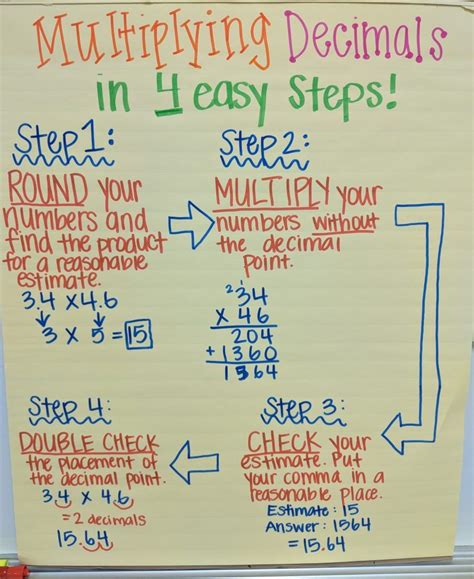 Multiplying Decimals
in 4 easy Steps!
Step 1:
ROUND your
numbers and
find the product
for a reasonable
estimate.
3.4 x 4.6
3 x 5 = 15
Step 2:
MULTIPLY your
numbers without
the decimal
point.
2 1
34
x 46
204
+ 1360
1564
Step 3:
CHECK your
estimate. Put
your comma in a
reasonable place.
Estimate: 15
Answer: 1564
= 15.64
Step 4:
DOUBLE CHECK
the placement of
the decimal point.
3.4 x 4.6
= 2 decimals
15.64